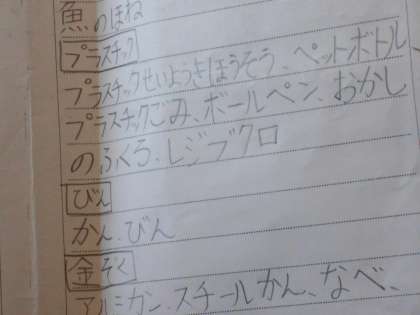 魚のほね
プラスチック
プラスチックせいようきほうそう、ペットボトル
プラスチックごみ、ボールペン、おかし
のふくろ、レジブクロ
びん
かん、びん
金ぞく
アルミカン、スチールかん、なべ、